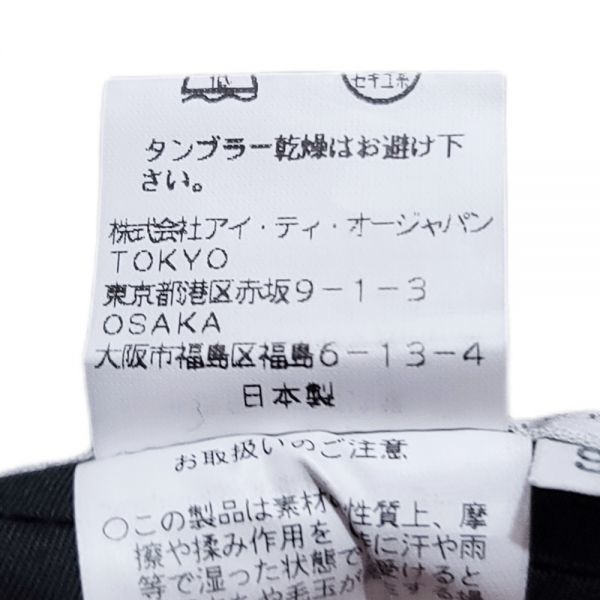 セキユ系
タンブラー乾燥はお避け下
さい。
株式会社アイ・ティ・オージャパン
TOKYO
東京都港区赤坂9-1-3
OSAKA
大阪市福島区福島6-13-4
日本製
お取扱いのご注意
○この製品は素材 性質上、摩
擦や揉み作用を 特に汗や雨
等で湿った状態で 受けると
や毛玉が
S